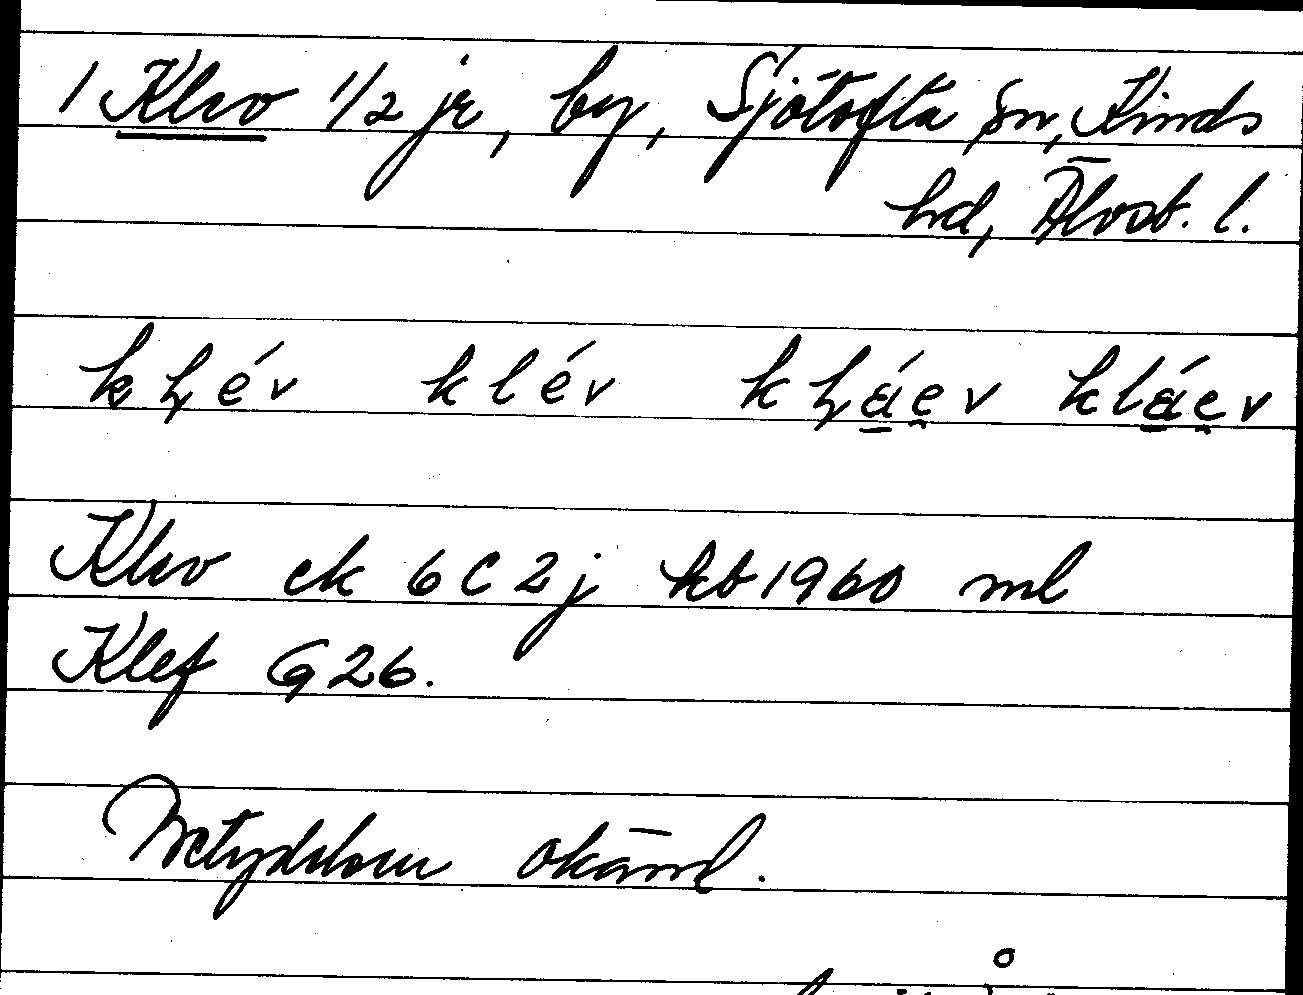 1 Klev 1/2 jr, by, Sjötofta sn, Kinds
hd, Älvsb. l.
kļév klév kļáev kláev
Klev ek 6C2j kb 1960 ml
Klef G26.
Betydelsen okänd.